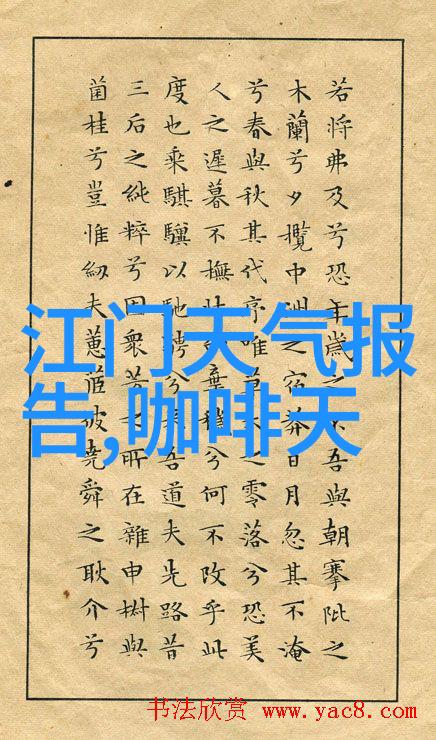 若將弗及兮恐年歲之吾與朝搴阰之
木蘭兮夕攬中洲之宿莽日月忽其不淹
兮春與秋其代序唯草之零落兮恐美
人之遲暮不撫棄穢兮何不改乎此
度也乘騏驥以馳騁兮吾道夫先路昔
三后之純粹兮固衆芳之所在雜申椒與
菌桂兮豈惟紉夫蕙茝彼堯舜之耿介兮
江门天气报
告,咖啡天
书法欣赏 www.yac8.com